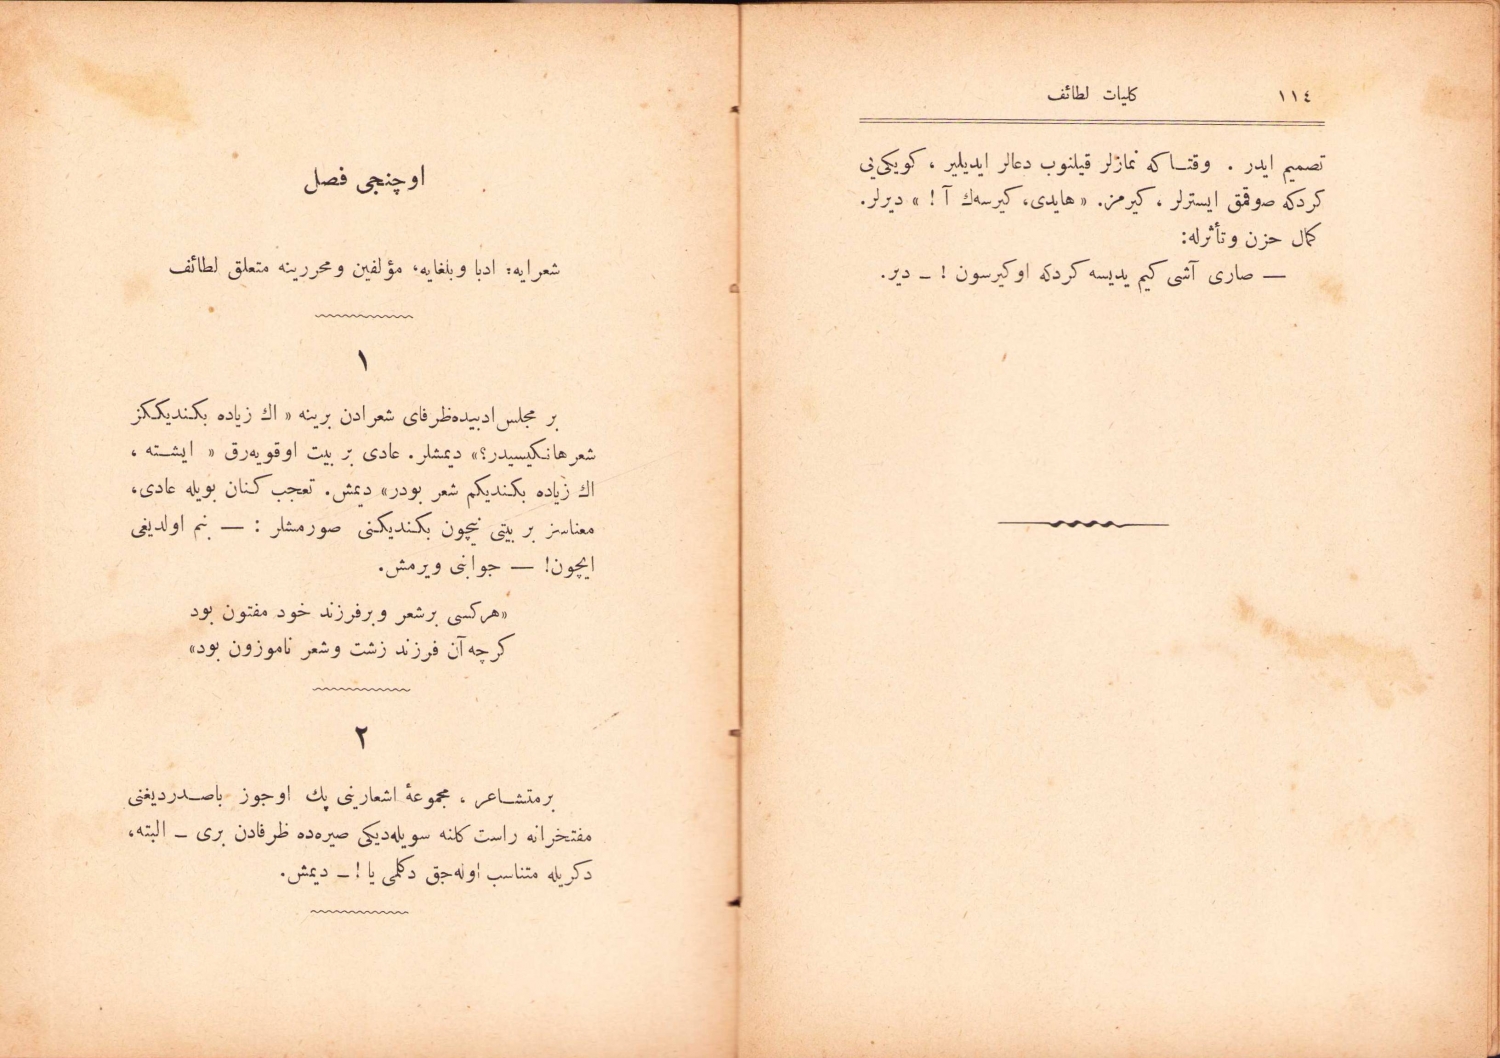 ١١٤
كليات لطائف
تصميم ايدر . وقتـاكه نمازلر قيلنوب دعالر ايديلير ، كويكى‌يى
كردكه صوقمق ايسترلر ، كيرمز. « هايدى، كيرسه‌ك آ ! » ديرلر.
كمال حزن وتأثرله:
— صارى آشى كيم يديسه كردكه اوكيرسون ! ــ دير.
اوچنجى فصل
شعرايه؛ ادبا وبلغايه، مؤلفين ومحررينه متعلق لطائف
١
بر مجلس ادبيده‌ظرفاى شعرادن برينه « اك زياده بكنديككز
شعر هانكيسيدر؟» ديمشلر. عادى بر بيت اوقويه‌رق « ايشـته ،
اك زياده بكنديكم شعر بودر» ديمش. تعجب كنان بويله عادى،
معناسز بر بيتى نيچون بكنديكنى صورمشلر : — بنم اولديغى
ايچون! — جوابنى ويرمش.
«هركسى برشعر وبرفرزند خود مفتون بود
كرچه آن فرزند زشت وشعر ناموزون بود»
٢
برمتشـاعر ، مجموعهٔ اشعارينى پك اوجوز باصـدرديغنى
مفتخرانه راست كلنه سويله‌ديكى صيره‌ده ظرفادن برى ــ البته،
دكريله متناسب اوله‌جق دكلمى يا ! ــ ديمش.